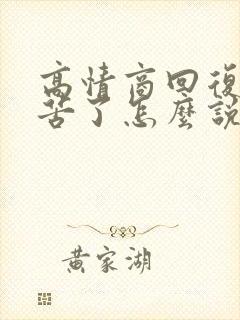 高情商回復
苦了怎麼說
黃家湖